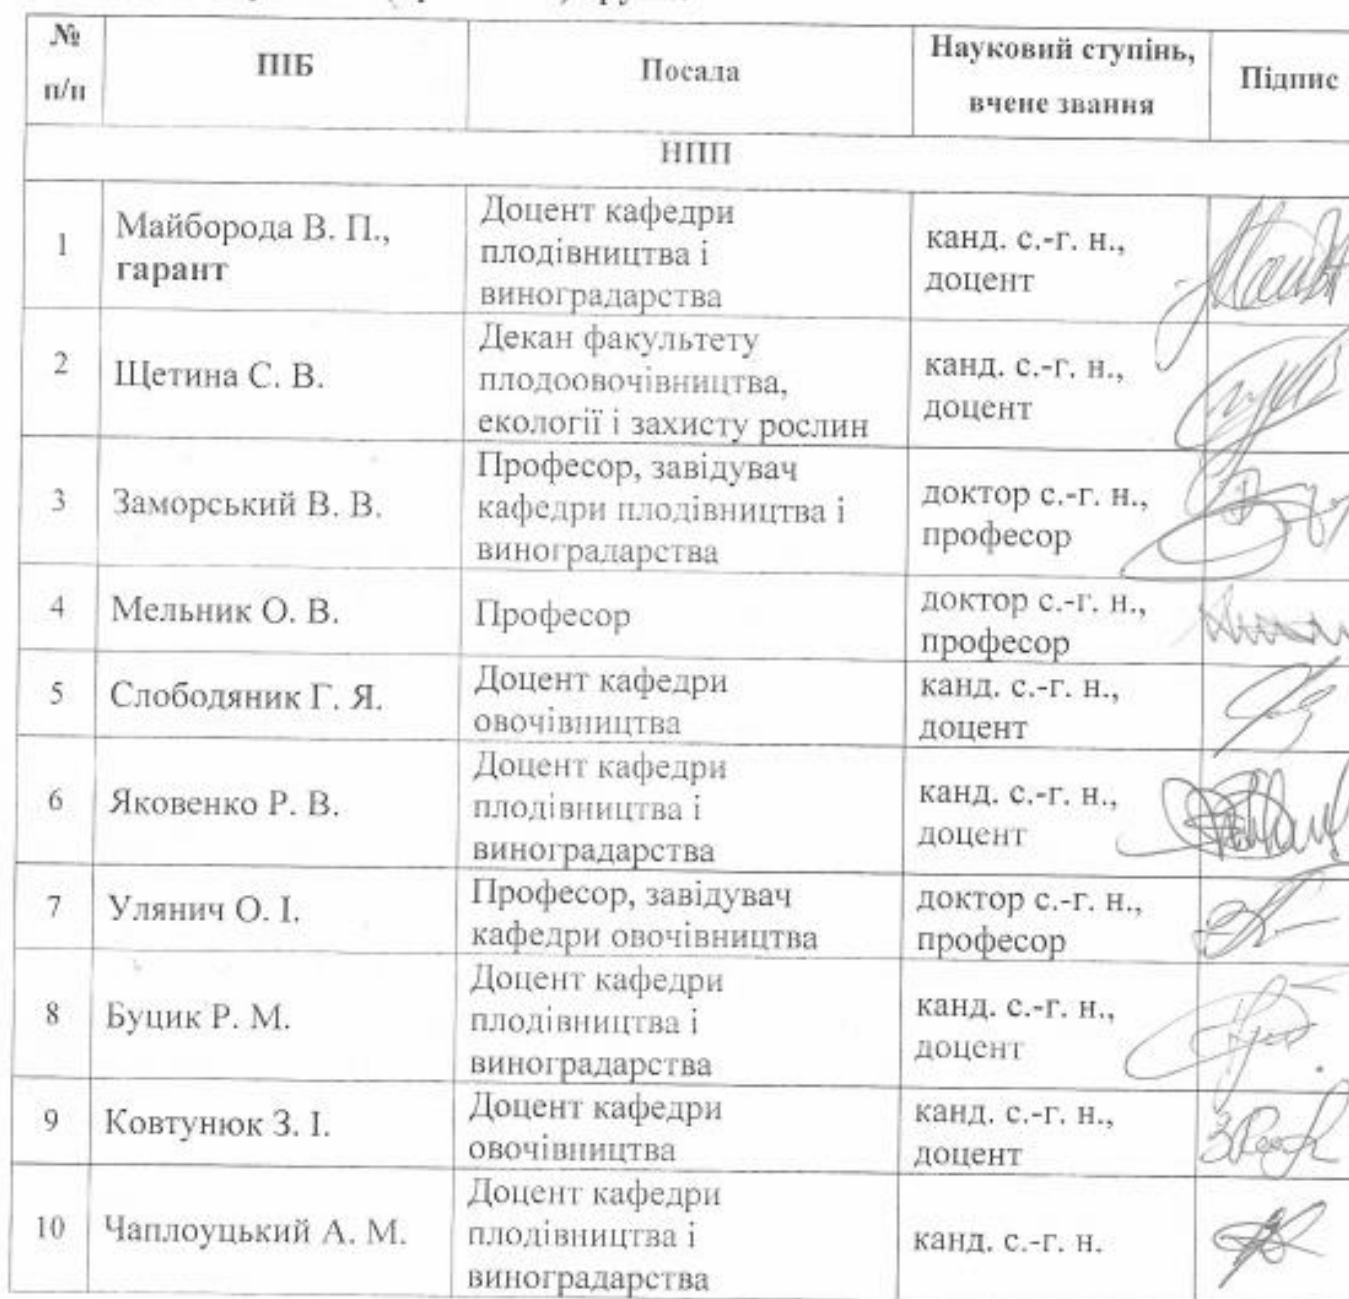 №
п/п
ПІБ
Посада
Науковий ступінь,
вчене звання
Підпис
НПП
1
Майборода В. П.,
гарант
Доцент кафедри
плодівництва і
виноградарства
канд. с.-г. н.,
доцент
2
Щетина С. В.
Декан факультету
плодоовочівництва,
екології і захисту рослин
канд. с.-г. н.,
доцент
3
Заморський В. В.
Професор, завідувач
кафедри плодівництва і
виноградарства
доктор с.-г. н.,
професор
4
Мельник О. В.
Професор
доктор с.-г. н.,
професор
5
Слободяник Г. Я.
Доцент кафедри
овочівництва
канд. с.-г. н.,
доцент
6
Яковенко Р. В.
Доцент кафедри
плодівництва і
виноградарства
канд. с.-г. н.,
доцент
7
Улянич О. І.
Професор, завідувач
кафедри овочівництва
доктор с.-г. н.,
професор
8
Буцик Р. М.
Доцент кафедри
плодівництва і
виноградарства
канд. с.-г. н.,
доцент
9
Ковтунюк З. І.
Доцент кафедри
овочівництва
канд. с.-г. н.,
доцент
10
Чаплоуцький А. М.
Доцент кафедри
плодівництва і
виноградарства
канд. с.-г. н.